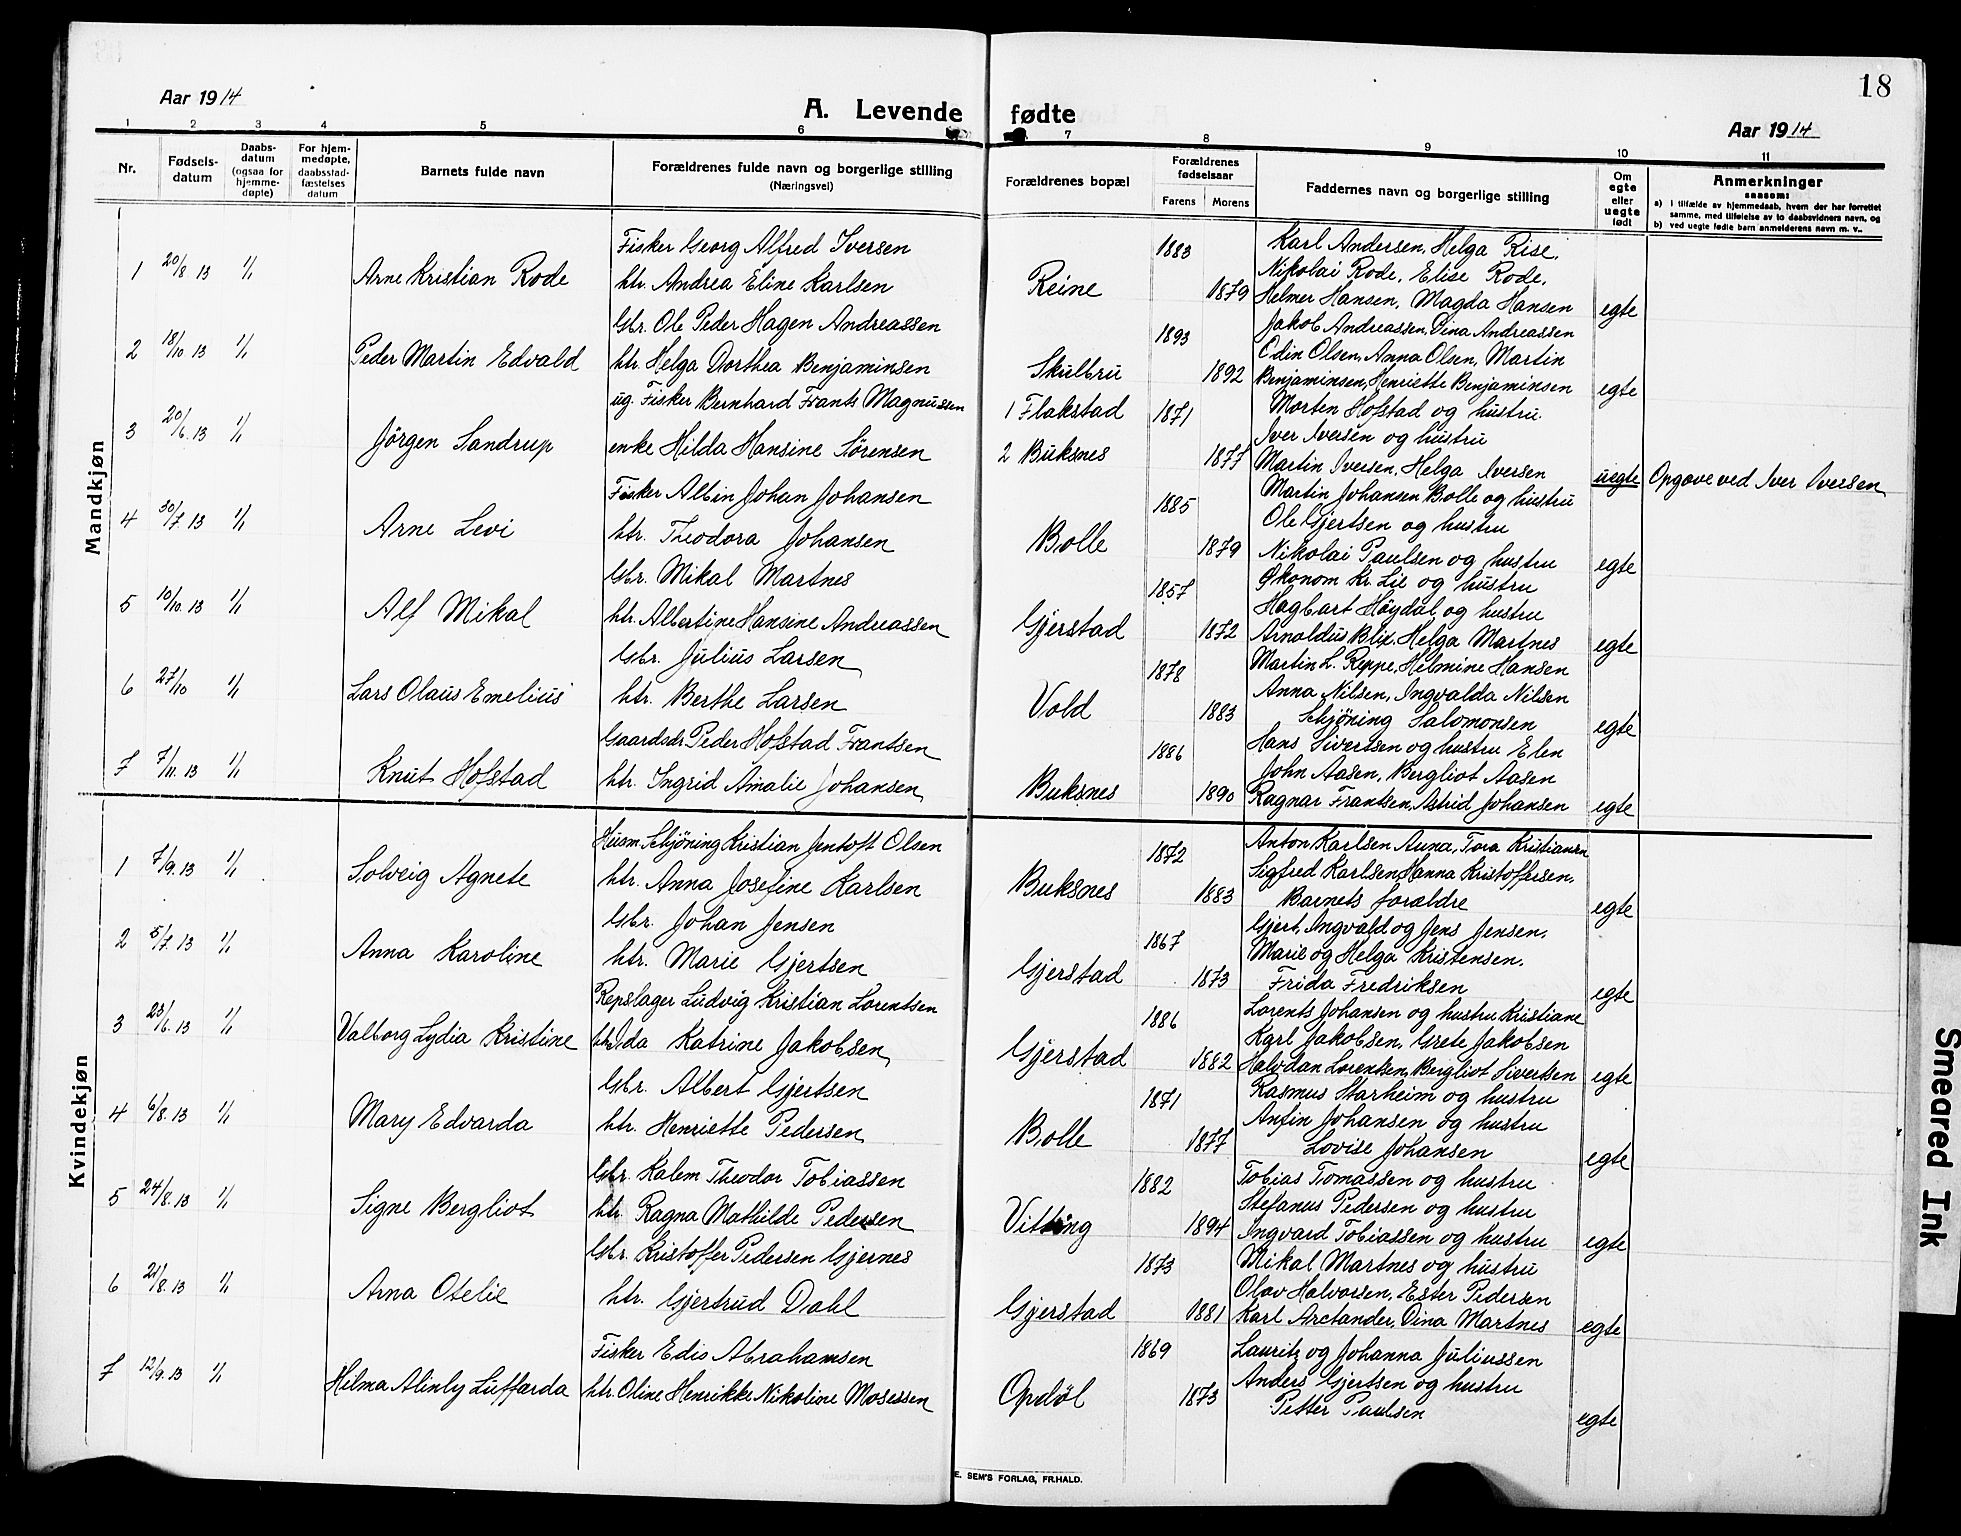 18
Aar 1914
A. Levende fødte
Aar 1914
1 2 3 4 5 6 7 8 9 10 11
Nr.
Fødsels-
datum
Daabs-
datum
(ogsaa for
hjemme-
døpte)
For hjem-
medøpte,
daabsstad-
fæstelses
datum
Barnets fulde navn
Forældrenes fulde navn og borgerlige stilling
(Næringsvei)
Forældrenes bopæl
Forældrenes
fødselsaar
Farens Morens
Faddernes navn og borgerlige stilling
Om
egte
eller
uegte
født
Anmerkninger
saasom:
a) I tilfælde av hjemmedaab, hvem der har forrettet
samme, med tilføielse av to daabsvidners navn, og
b) ved uegte fødte barn anmelderens navn m. v.
Mandkjøn
1 20/8 13 1/1 Arne Kristian Rode
Fisker Georg Alfred Iversen
htr. Andrea Eline Karlsen
Reine 1883 1879
Karl Andersen, Helga Rise,
Nikolai Rode, Elise Rode,
Helmer Hansen, Magda Hansen
egte
2 18/10 13 1/1 Peder Martin Edvald
Gbr. Ole Peder Hagen Andreassen
htr. Helga Dorthea Benjaminsen
Skulbru 1893 1892
Jakob Andreassen, Dina Andreassen
Odin Olsen, Anna Olsen, Martin
Benjaminsen, Henriette Benjaminsen
egte
3 20/6 13 1/1 Jörgen Sandrup
ug. Fisker Bernhard Frants Magnussen
enke Hilda Hansine Sørensen
1 Flakstad
2 Buksnes
1871 1877
Morten Hofstad og hustru.
Iver Iversen og hustru
Martin Iversen, Helga Iversen
uegte Opgave ved Iver Iversen
4 30/7 13 1/1 Arne Levi
Fisker Albin Johan Johansen
htr. Theodora Johansen
Bolle 1885 1879
Martin Johansen Bolle og hustru
Ole Gjertsen og hustru
Nikolai Paulsen og hustru
egte
5 10/10 13 1/1 Alf Mikal
Gbr. Mikal Martnes
htr. Albertine Hansine Andreassen
Gjerstad 1857 1872
Økonom Kr. Lie og hustru
Hagbart Höydal og hustru
Arnoldus Blix, Helga Martnes
egte
6 27/10 1/1 Lars Olaus Emelius
Gbr. Julius Larsen
htr. Berthe Larsen
Vold 1878 1883
Martin L. Reppe, Helmine Hansen
Anna Nilsen, Ingvalda Nilsen
Schjöning Salomonsen
egte
7 7/11 13 1/1 Knut Hofstad
Gaardsdr. Peder Hofstad Frantsen
htr. Ingrid Amalie Johansen
Buksnes 1886 1890
Hans Sivertsen og hustru Elen
John Aasen, Bergliot Aasen
Ragnar Frantsen, Astrid Johansen
egte
Kvindekjøn
1 7/9 13 1/1 Solveig Agnete
Husm. Schjöning Kristian Jentoft Olsen
htr. Anna Josefine Karlsen
Buksnes 1872 1883
Anton Karlsen Auna, Tora Kristiansen
Sigfred Karlsen, Hanna Kristoffersen.
Barnets forældre
egte
2 5/7 13 1/1 Anna Karoline
Gbr. Johan Jensen
htr. Marie Gjertsen
Gjerstad 1867 1873
Gjert, Ingvald og Jens Jensen.
Marie og Helga Kristensen.
Frida Fredriksen
egte
3 23/6 13 1/1 Valborg Lydia Kristine
Repslager Ludvig Kristian Lorentsen
htr. Ida Katrine Jakobsen
Gjerstad 1886 1882
Lorents Johansen og hustru Kristiane
Karl Jakobsen, Grete Jakobsen
Halvdan Lorentsen, Bergliot Sivertsen
egte
4 6/8 13 1/1 Mary Edvarda
Gbr. Albert Gjertsen
htr. Henriette Pedersen
Bolle 1871 1877
Rasmus Starheim og hustru
Anfin Johansen og hustru
Lovise Johansen
egte
5 24/8 13 1/1 Signe Bergliot
Gbr. Kalem Theodor Tobiassen
htr. Ragna Mathilde Pedersen
Vitting 1882 1894
Tobias Tomassen og hustru
Stefanus Pedersen og hustru
Ingvard Tobiassen og hustru
egte
6 21/8 13 1/1 Arna Otelie
Gbr. Kristoffer Pedersen Gjernes
htr. Gjertrud Dahl
Gjerstad 1873 1881
Mikal Martnes og hustru
Olav Halvorsen, Ester Pedersen
Karl Arctander, Dina Martnes
egte
7 12/9 13 1/1 Hilma Alinly Luffarda
Fisker Edis Abrahamsen
htr. Oline Henrikke Nikoline Mosessen
Opdöl 1869 1873
Lauritz og Johanna Juliussen
Anders Gjertsen og hustru
Petter Paulsen
egte
E. SEM'S FORLAG, FR.HALD.
Smeared Ink